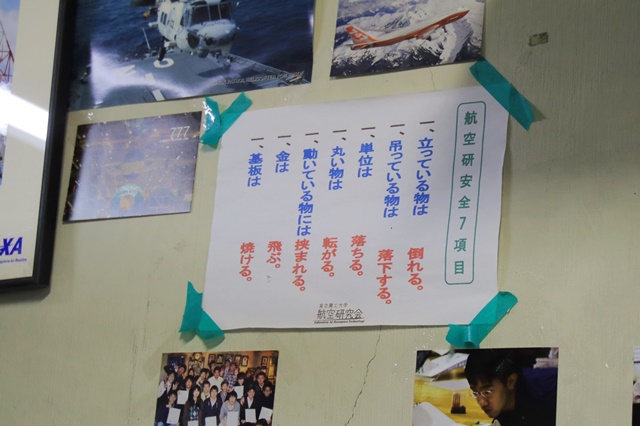 航空研安全7項目
一、立っている物は 倒れる。
一、吊っている物は 落下する。
一、単位は 落ちる。
一、丸い物は 転がる。
一、動いている物には 挟まれる。
一、金は 飛ぶ。
一、基板は 焼ける。
航空研究会
777